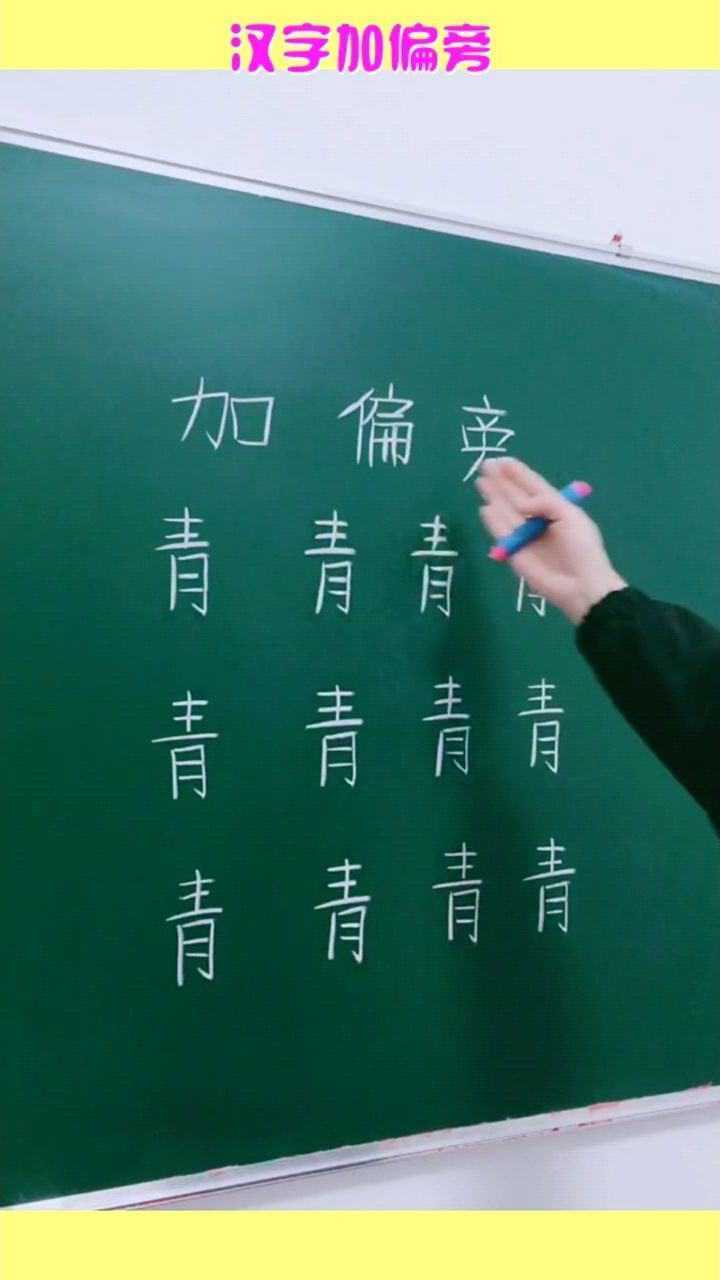 汉字加偏旁
加 偏 旁
青 青 青
青 青 青 青
青 青 青 青